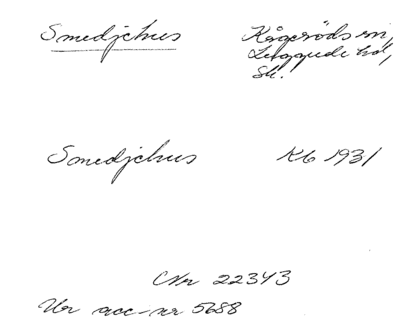 Smedjehus Kågeröds sn,
Luggude hd,
Sk.
Smedjehus Kb 1931
CNr 22343
Ur acc-nr 5688